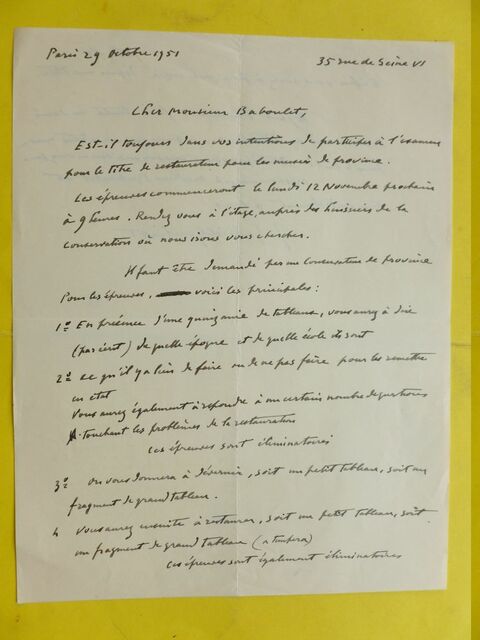 Paris 29 Octobre 1951
35 rue de Seine VI
Cher Monsieur Baboulet,
Est-il toujours dans vos intentions de participer à l'examen
pour le titre de restaurateur pour les musées de province.
Les épreuves commenceront le lundi 12 Novembre prochain
à 9 heures. Rendez vous à l'étage, auprès des huissiers de la
Conservation où nous irons vous chercher.
Il faut être demandé par un Conservateur de province
Pour les épreuves, voici les principales :
1º En présence d'une quinzaine de tableaux, vous aurez à dire
(par écrit) de quelle époque et de quelle école ils sont
2º ce qu'il y a lieu de faire ou de ne pas faire pour les remettre
en état
Vous aurez également à répondre à un certain nombre de questions
touchant les problèmes de la restauration
Ces épreuves sont éliminatoires
3º On vous donnera à dévernir, soit un petit tableau, soit un
fragment de grand tableau.
4 Vous aurez ensuite à restaurer, soit un petit tableau, soit
un fragment de grand tableau (a tempera)
Ces épreuves sont également éliminatoires